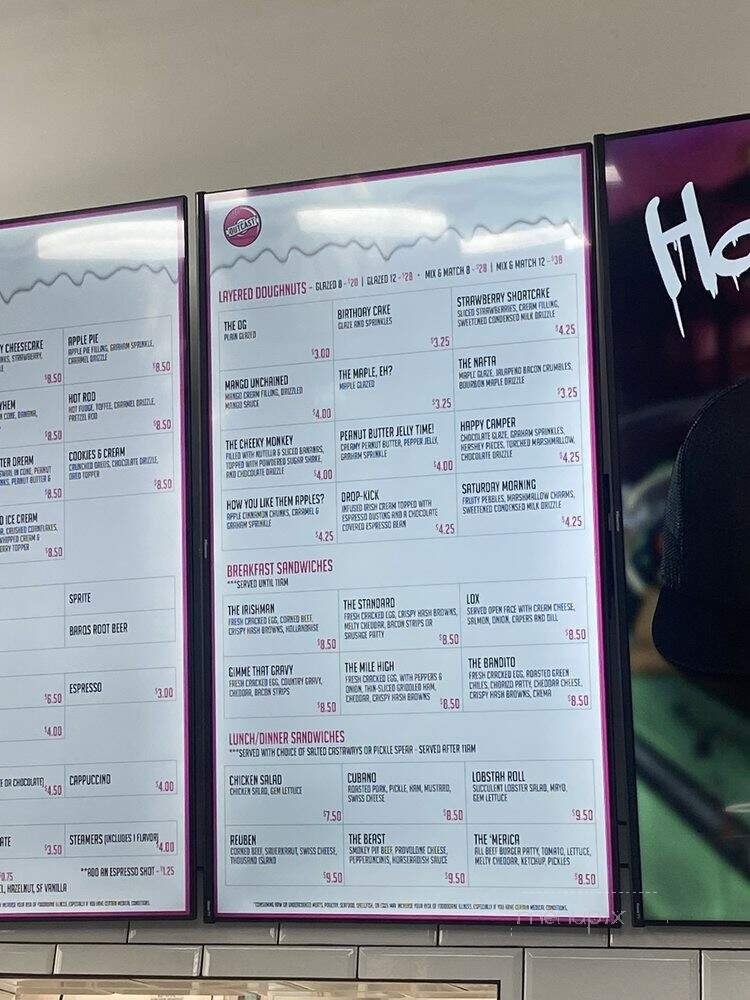 Y CHEESECAKE
NKS, STRAWBERRY,
$8.50
APPLE PIE
APPLE PIE FILLING, GRAHAM SPRINKLE,
CARAMEL DRIZZLE
$8.50
IN CONE, BANANA,
$8.50
HOT ROD
HOT FUDGE, TOFFEE, CARAMEL DRIZZLE,
PRETZEL ROD
$8.50
TER DREAM
IN CONE, PEANUT
NKS, PEANUT BUTTER &
$8.50
COOKIES & CREAM
CRUNCHED OREOS, CHOCOLATE DRIZZLE,
OREO TOPPER
$8.50
D ICE CREAM
R, CRUSHED CORNFLAKES,
WHIPPED CREAM &
ERRY TOPPER
$8.50
SPRITE
BARQS ROOT BEER
$6.50
ESPRESSO
$3.00
$4.00
E OR CHOCOLATE)
$4.50
CAPPUCCINO
$4.00
ATE
$3.50
STEAMERS (INCLUDES 1 FLAVOR)
$4.00
$0.75
**ADD AN ESPRESSO SHOT - $1.25
EL, HAZELNUT, SF VANILLA
OUTCAST
LAYERED DOUGHNUTS - GLAZED 8 - $20 | GLAZED 12 - $28 • MIX & MATCH 8 - $28 | MIX & MATCH 12 - $38
THE OG
PLAIN GLAZED
$3.00
BIRTHDAY CAKE
GLAZE AND SPRINKLES
$3.25
STRAWBERRY SHORTCAKE
SLICED STRAWBERRIES, CREAM FILLING,
SWEETENED CONDENSED MILK DRIZZLE
$4.25
MANGO UNCHAINED
MANGO CREAM FILLING, DRIZZLED
MANGO SAUCE
$4.00
THE MAPLE, EH?
MAPLE GLAZED
$3.25
THE NAFTA
MAPLE GLAZE, JALAPENO BACON CRUMBLES,
BOURBON MAPLE DRIZZLE
$3.25
THE CHEEKY MONKEY
FILLED WITH NUTELLA & SLICED BANANAS,
TOPPED WITH POWDERED SUGAR SHAKE,
AND CHOCOLATE DRIZZLE
$4.00
PEANUT BUTTER JELLY TIME!
CREAMY PEANUT BUTTER, PEPPER JELLY,
GRAHAM SPRINKLE
$4.00
HAPPY CAMPER
CHOCOLATE GLAZE, GRAHAM SPRINKLES,
HERSHEY PIECES, TORCHED MARSHMALLOW,
CHOCOLATE DRIZZLE
$4.25
HOW YOU LIKE THEM APPLES?
APPLE CINNAMON CHUNKS, CARAMEL &
GRAHAM SPRINKLE
$4.25
DROP-KICK
INFUSED IRISH CREAM TOPPED WITH
ESPRESSO DUSTING AND A CHOCOLATE
COVERED ESPRESSO BEAN
$4.25
SATURDAY MORNING
FRUITY PEBBLES, MARSHMALLOW CHARMS,
SWEETENED CONDENSED MILK DRIZZLE
$4.25
BREAKFAST SANDWICHES
***SERVED UNTIL 11AM
THE IRISHMAN
FRESH CRACKED EGG, CORNED BEEF,
CRISPY HASH BROWNS, HOLLANDAISE
$8.50
THE STANDARD
FRESH CRACKED EGG, CRISPY HASH BROWNS,
MELTY CHEDDAR, BACON STRIPS OR
SAUSAGE PATTY
$8.50
LOX
SERVED OPEN FACE WITH CREAM CHEESE,
SALMON, ONION, CAPERS AND DILL
$8.50
GIMME THAT GRAVY
FRESH CRACKED EGG, COUNTRY GRAVY,
CHEDDAR, BACON STRIPS
$8.50
THE MILE HIGH
FRESH CRACKED EGG, WITH PEPPERS &
ONION, THIN-SLICED GRIDDLED HAM,
CHEDDAR, CRISPY HASH BROWNS
$8.50
THE BANDITO
FRESH CRACKED EGG, ROASTED GREEN
CHILES, CHORIZO PATTY, CHEDDAR CHEESE,
CRISPY HASH BROWNS, CREMA
$8.50
LUNCH/DINNER SANDWICHES
***SERVED WITH CHOICE OF SALTED CASTAWAYS OR PICKLE SPEAR - SERVED AFTER 11AM
CHICKEN SALAD
CHICKEN SALAD, GEM LETTUCE
$7.50
CUBANO
ROASTED PORK, PICKLE, HAM, MUSTARD,
SWISS CHEESE
$8.50
LOBSTAH ROLL
SUCCULENT LOBSTER SALAD, MAYO,
GEM LETTUCE
$9.50
REUBEN
CORNED BEEF, SAUERKRAUT, SWISS CHEESE,
THOUSAND ISLAND
$9.50
THE BEAST
SMOKEY PIT BEEF, PROVOLONE CHEESE,
PEPPERONCINIS, HORSERADISH SAUCE
$9.50
THE 'MERICA
ALL BEEF BURGER PATTY, TOMATO, LETTUCE,
MELTY CHEDDAR, KETCHUP, PICKLES
$8.50
*CONSUMING RAW OR UNDERCOOKED MEATS, POULTRY, SEAFOOD, SHELLFISH, OR EGGS MAY INCREASE YOUR RISK OF FOODBORNE ILLNESS, ESPECIALLY IF YOU HAVE CERTAIN MEDICAL CONDITIONS.
Ho
menupix